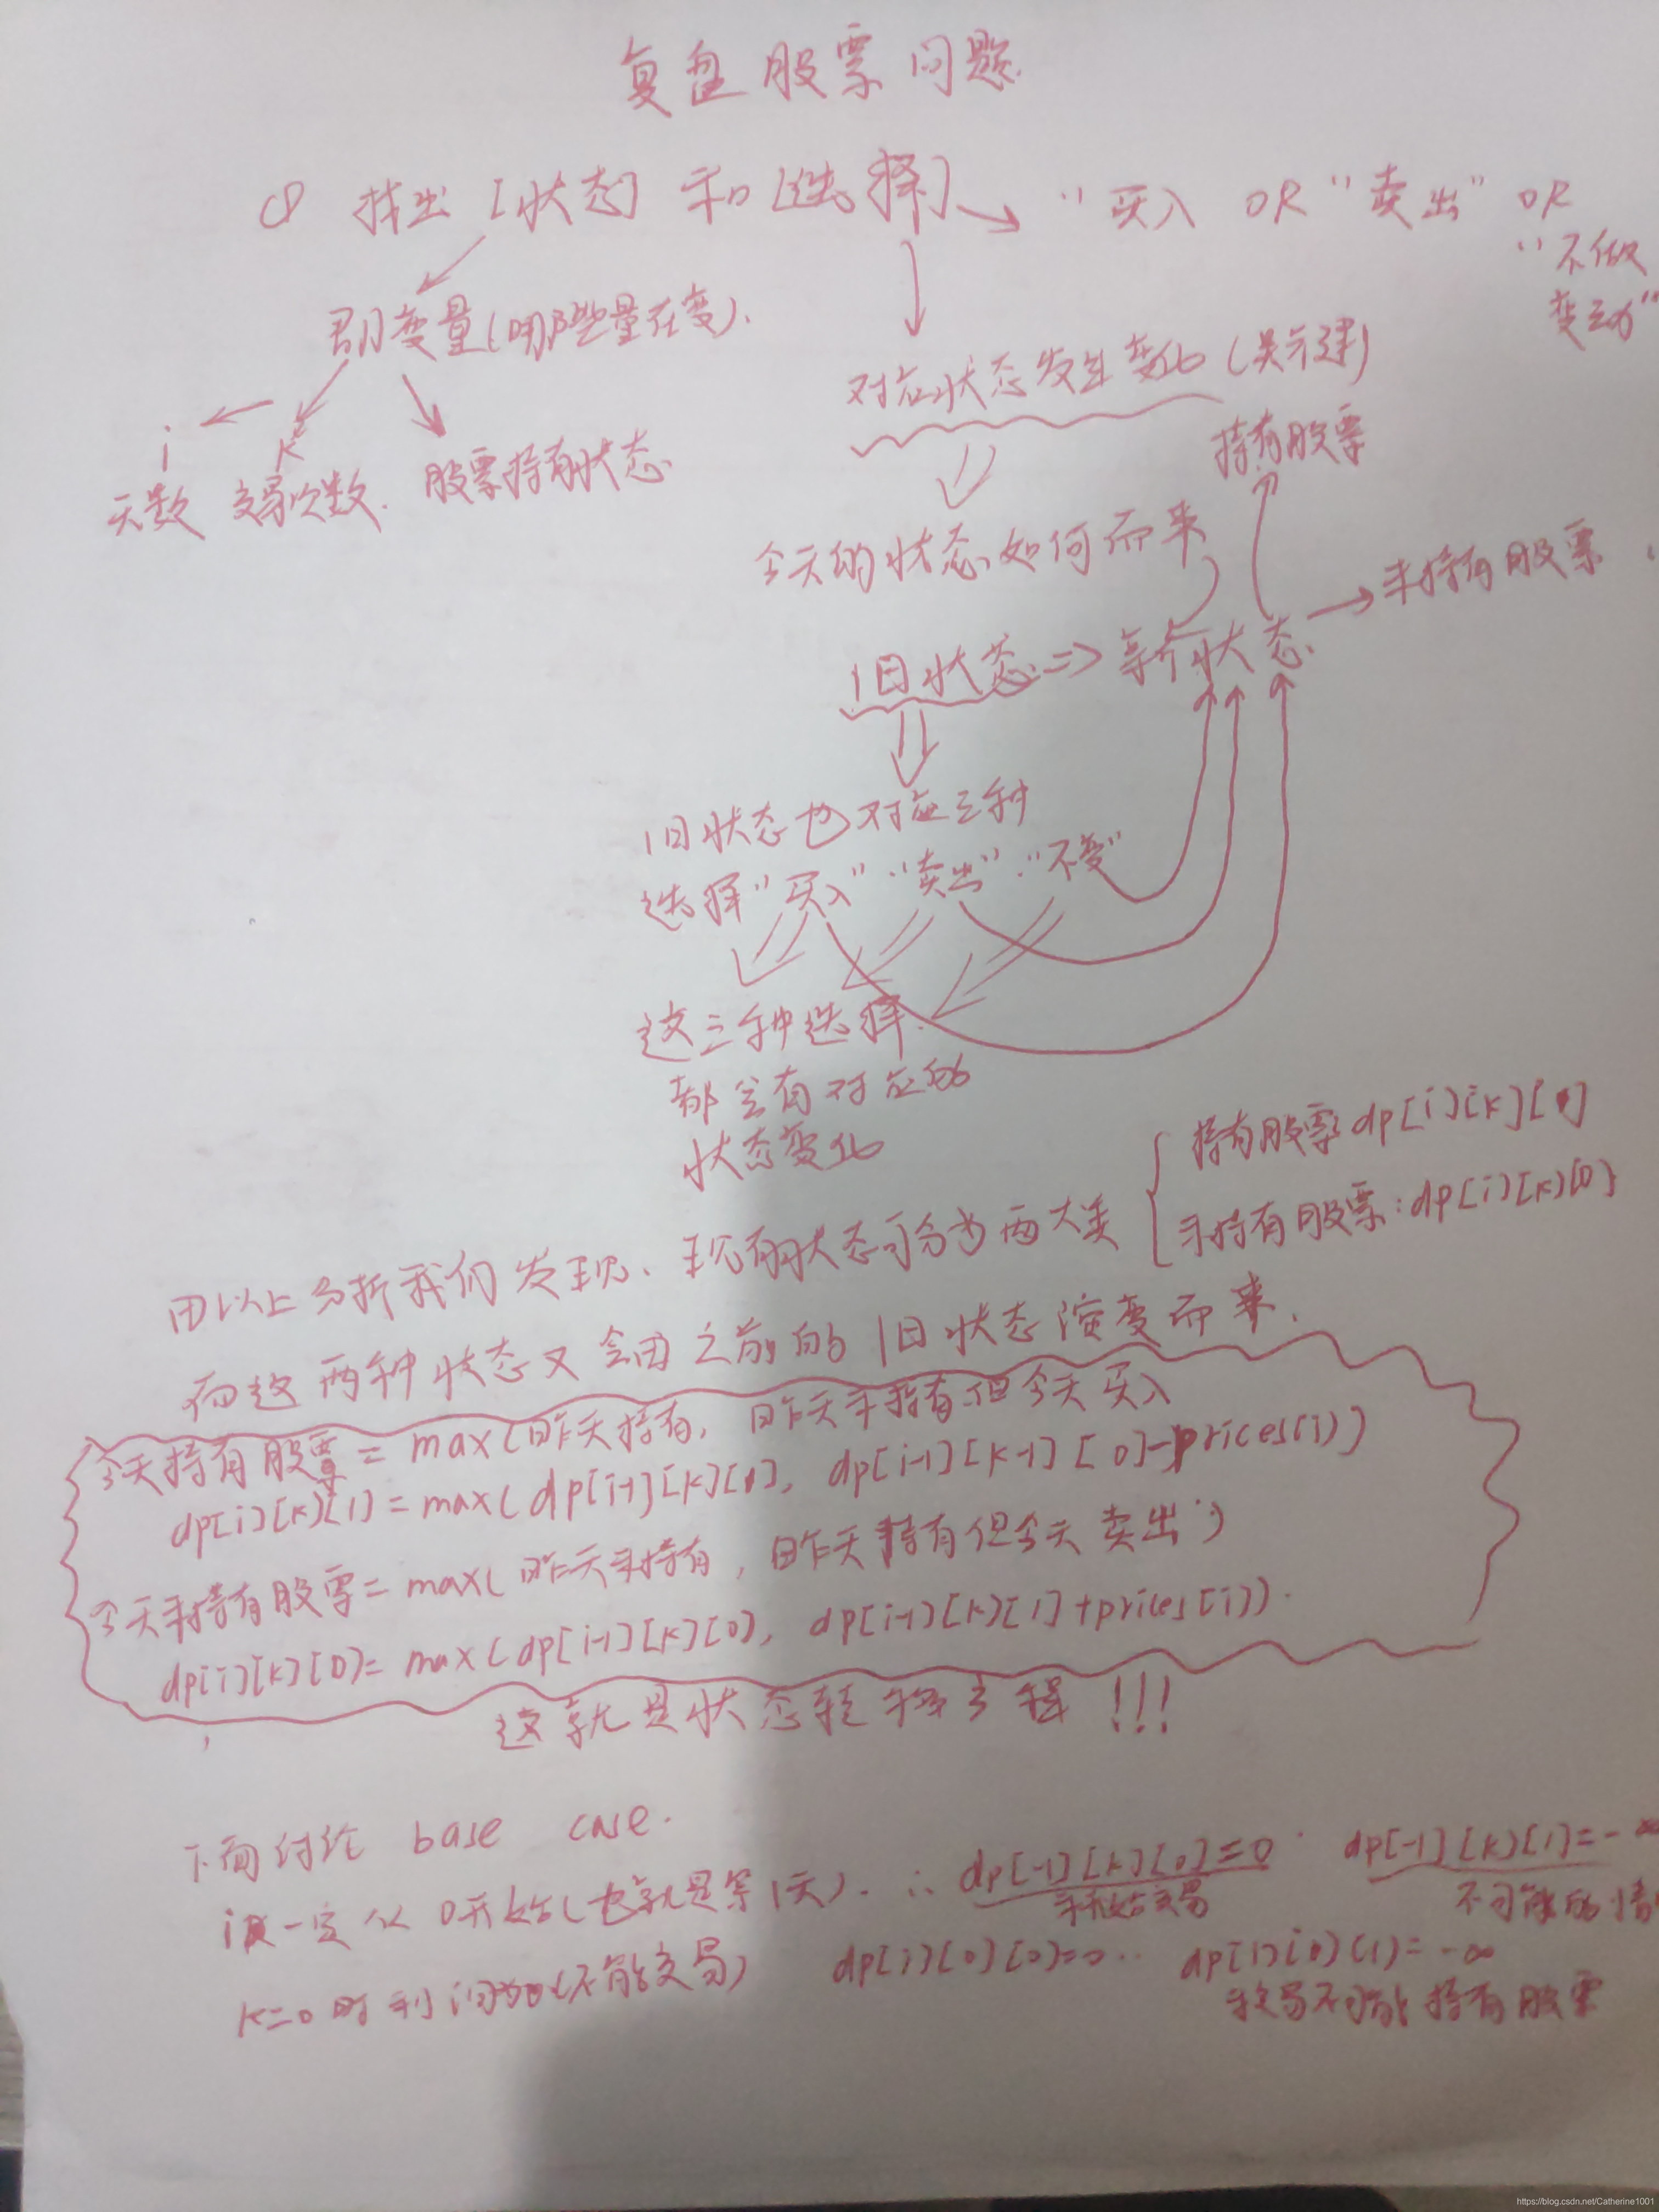 复盘股票问题
① 找出[状态]和[选择] → "买入 OR "卖出" OR
"不做
变动"
即变量(哪些量在变).
对应状态发生变化(关键)
i
k
天数 交易次数. 股票持有状态
持有股票
今天的状态如何而来
未持有股票
旧状态 => 新状态
旧状态也对应三种
选择"买入" "卖出". "不变"
这三种选择.
都会有对应的
状态变化
持有股票 dp[i][k][1]
未持有股票:dp[i][k][0]
由以上分析我们发现、现有状态可分为两大类
而这两种状态又会由之前的旧状态演变而来.
今天持有股票 = max(昨天持有, 昨天未持有但今天买入
dp[i][k][1] = max(dp[i-1][k][1], dp[i-1][k-1][0]-prices[i])
今天未持有股票 = max(昨天未持有, 昨天持有但今天卖出)
dp[i][k][0] = max(dp[i-1][k][0], dp[i-1][k][1]+prices[i]).
这就是状态转移方程!!!
下面讨论 base case.
i 一定从0开始(也就是第1天). ∴ dp[-1][k][0]=0 dp[-1][k][1]=-∞
未开始交易 不可能的情
k=0时利润为0(不能交易) dp[i][0][0]=0.. dp[i][0][1]=-∞
未交易不可能持有股票
https://blog.csdn.net/Catherine1001